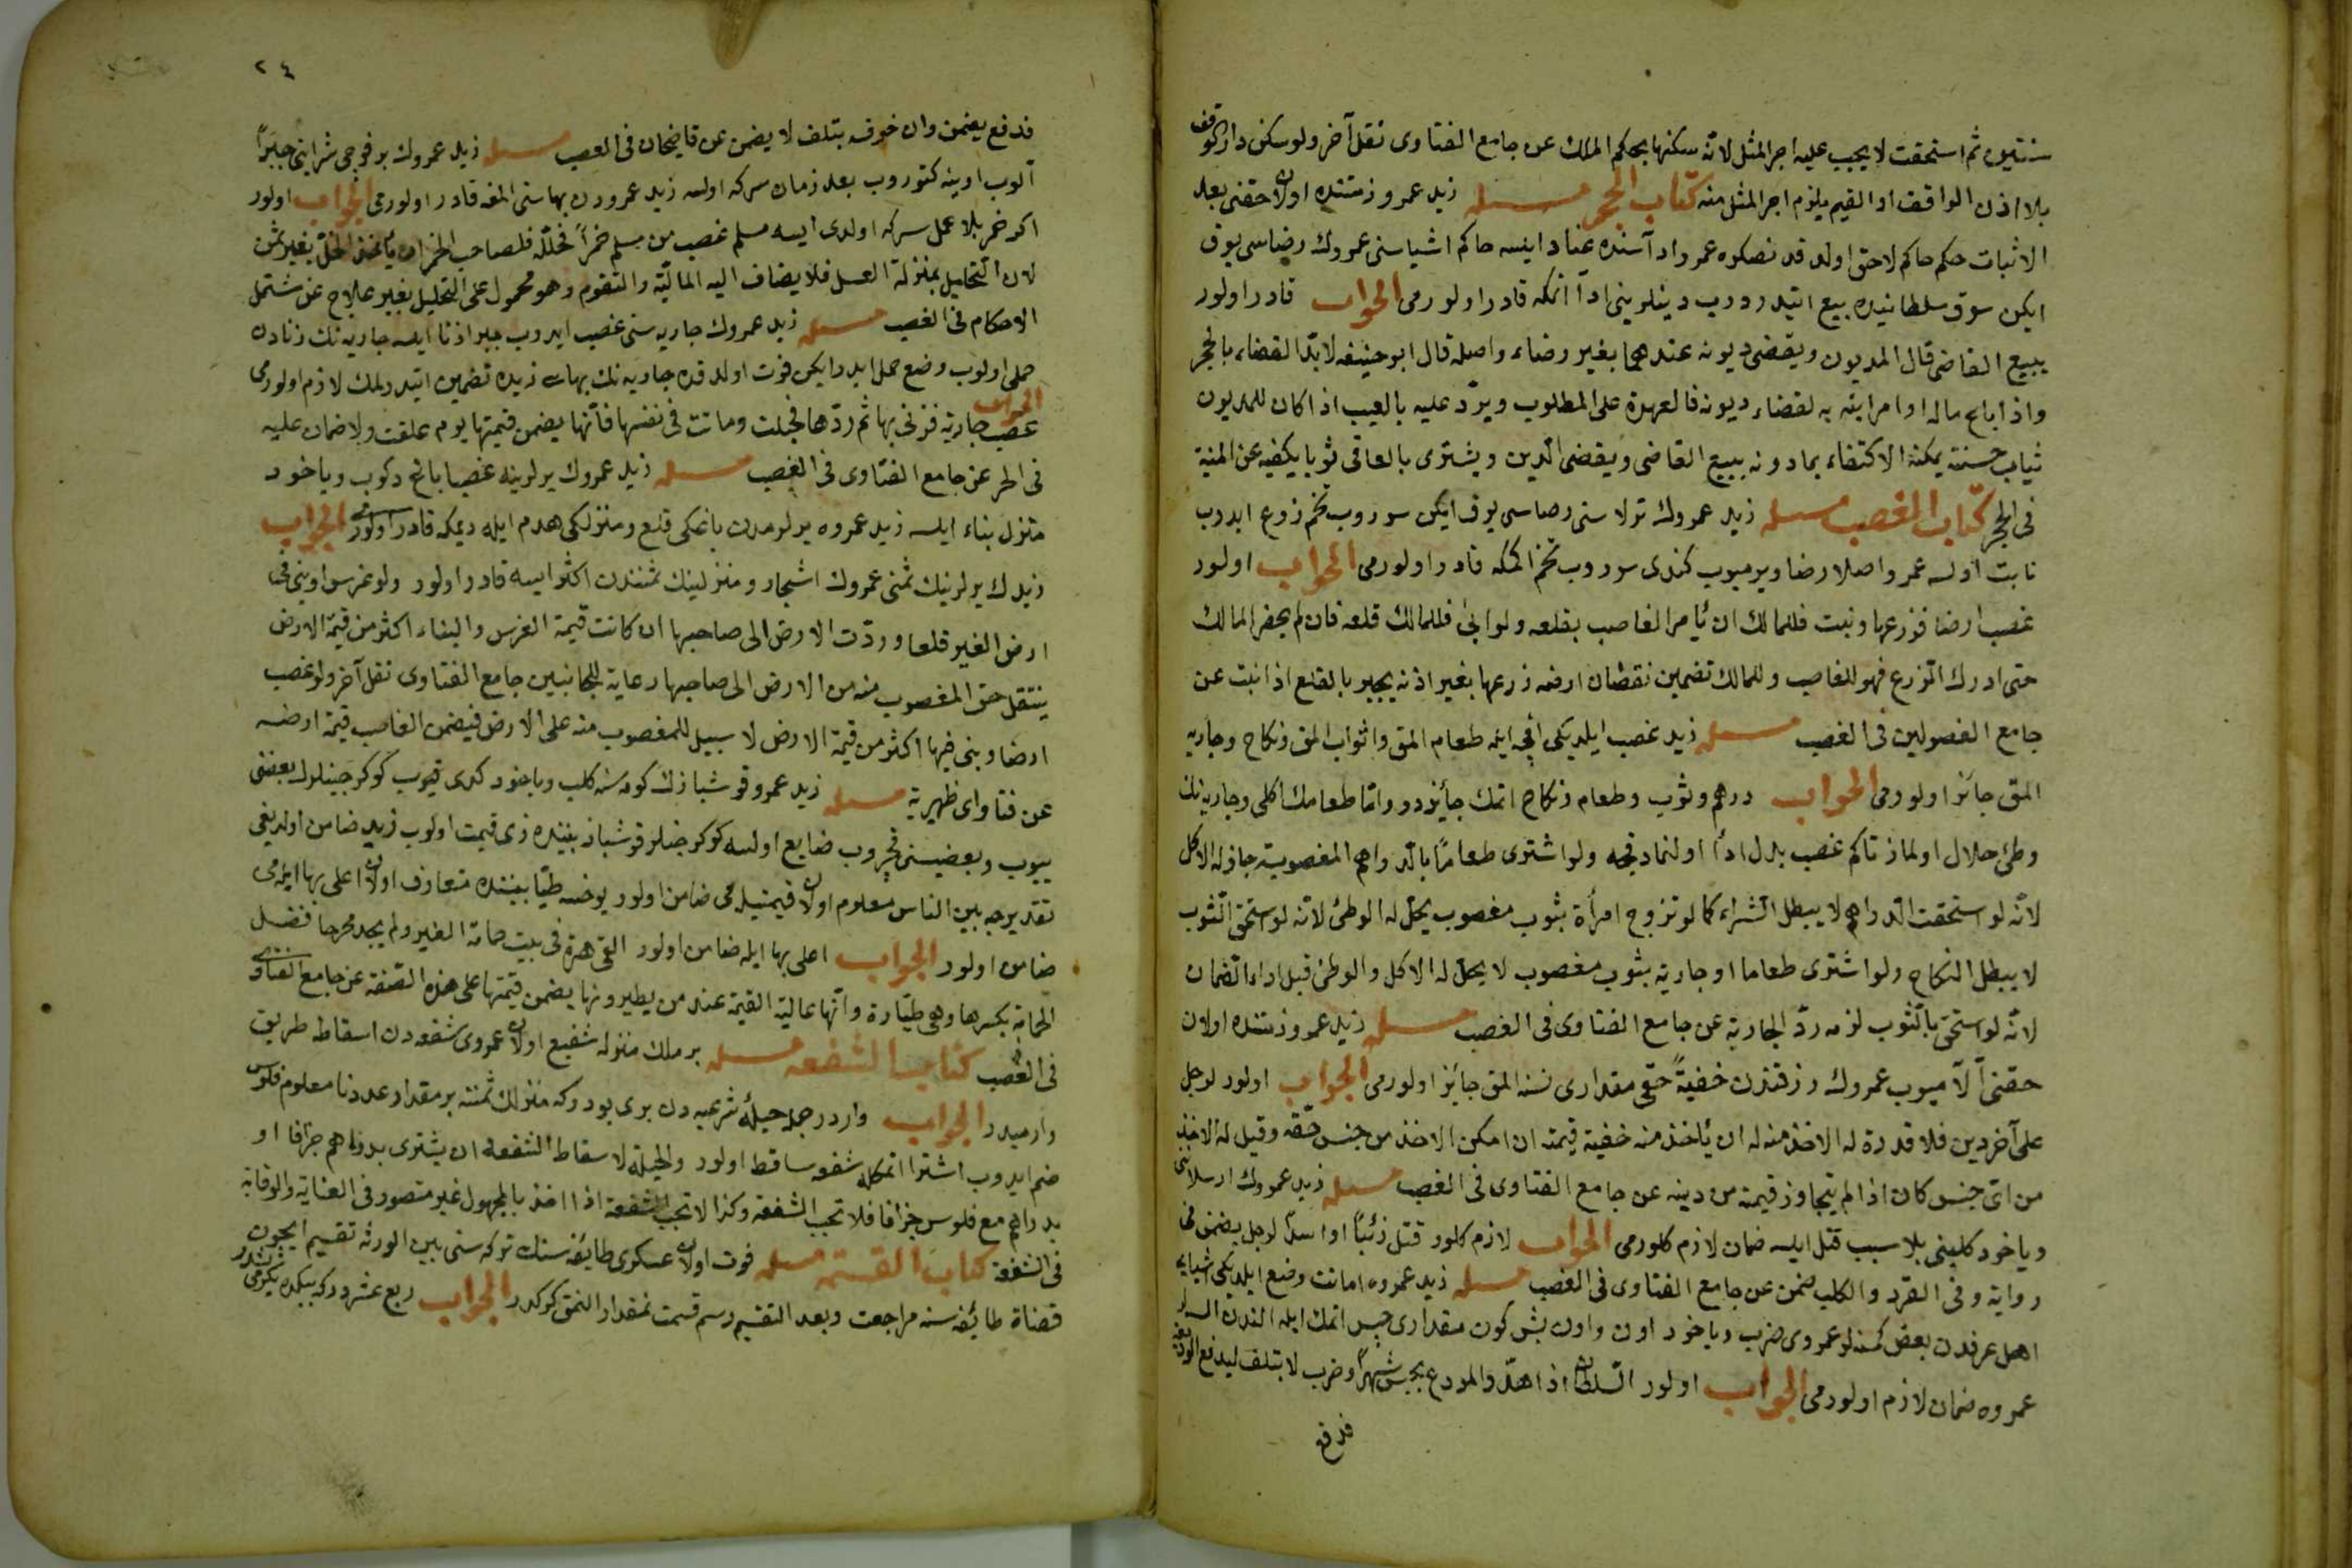 سنتين ثم استحقت لا يجب عليه اجر المثل لانه سكنها بحكم الملك عن جامع الفتاوى نقل آخر ولو سكن دار الوقف
بلا اذن الواقف او القيم يلزم اجر المثل منه كتاب الحجر مسئله زيد عمرو ذمتنده اولان حقنى بعد
الاثبات حكم حاكم لاحق اولد قد نصكره عمرو اداسنده عناد ايتسه حاكم اشياسنى عمروك رضاسى يوق
ايكن سوق سلطانيده بيع اتيدروب دينلرينى ادا اتمكه قادر اولورمى الجواب قادر اولور
يبيع القاضى قال المديون ويقضى ديونه عندهما بغير رضاء واصله قال ابو حنيفه لابد القضاء بالحجر
واذا باع ماله او امر ابنه به لقضاء ديونه فالعهدة على المطلوب ويرد عليه بالعيب اذا كان للمديون
ثياب حسنة يمكنه الاكتفاء بما دونه يبيع القاضى ويقضى الدين ويشترى بالباقى ثوبا يكفيه عن المنية
فى الحجر كتاب الغصب مسئله زيد عمروك ترلاسنى رضاسى يوق ايكن سوروب تخم زرع ايدوب
نابت اولسه عمرو اصلا رضا ويرميوب كندى سوروب تخم اكمكه قادر اولورمى الجواب اولور
غصب ارضا فزرعها ونبت فللمالك ان يأمر الغاصب بقلعه ولو ابى فللمالك قلعه فان لم يحضر المالك
حتى ادرك الزرع فهو للغاصب وللمالك تضمين نقصان ارضه زرعها بغير اذنه يجبر بالقلع اذا نبت عن
جامع الفصولين فى الغصب مسئله زيد غصب ايلديكى اقچه ايله طعام المق واثواب المق ونكاح وجاريه
المق جائز اولورمى الجواب درهم وثوب وطعام ونكاح اتمك جائزدر واما طعامك اكلى وجاريه نك
وطئ حلال اولماز تاكم غصب بدل ادا اولنمادقجه ولو اشترى طعاما بالدراهم المغصوبة جاز له الاكل
لانه لو استحقت الدراهم لا يبطل الشراء كما لو تزوج امرأة بثوب مغصوب يحل له الوطئ لانه لو استحق الثوب
لا يبطل النكاح ولو اشترى طعاما او جارية بثوب مغصوب لا يحل له الاكل والوطئ قبل اداء الضمان
لانه لو استحق بالثوب لزمه رد الجارية عن جامع الفتاوى فى الغصب مسئله زيد عمرو ذمتنده اولان
حقنى آلاميوب عمروك رزقندن خفية حقى مقدارى نسنه المق جائز اولورمى الجواب اولور لرجل
على آخر دين فلا قدرة له الاخذ منه له ان يأخذ منه خفية قيمته ان امكن الاخذ من جنس حقه وقيل له الاخذ
من اى جنس كان اذا لم يتجاوز قيمته من دينه عن جامع الفتاوى فى الغصب مسئله زيد عمروك ارسلاننى
وياخود كلبنى بلا سبب قتل ايلسه ضمان لازم كلورمى الجواب لازم كلور قتل ذئبا او اسدا لرجل يضمن فى
رواية وفى القرد والكلب ضمن عن جامع الفتاوى فى الغصب مسئله زيد عمروه امانت وضع ايلديكى اشيايه
اهل عرفدن بعض كمسنه لر عمروى ضرب وياخود اون واون بش كون مقدارى حبس اتمك ايله الندن السه لر
عمروه ضمان لازم اولورمى الجواب اولور السلطان اذا هدد المودع بحبس شهرا وضرب لا يتلف ليدفع الوديعة
فدفع
٢٤
فدفع يضمن وان خوف بتلف لا يضمن عن قاضيخان فى الغصب مسئله زيد عمروك بر فوجى شرابنى جبرا
آلوب اوينه كتوروب بعد زمان سركه اولسه زيد عمرودن بهاسنى المغه قادر اولورمى الجواب اولور
اكر خمر بلا عمل سركه اولدى ايسه مسلم غصب من مسلم خمرا فخلله فلصاحب الخمر ان يأخذ الخل بغير ثمن
لان التخليل بمنزلة الغسل فلا يضاف اليه المالية والتقوم وهو محمول على التخليل بغير علاج عن مشتمل
الاحكام فى الغصب مسئله زيد عمروك جاريه سنى غصب ايدوب جبرا زنا ايلسه جاريه نك زنادن
حملى اولوب وضع حمل ايدرايكن فوت اولد قده جاريه نك بهاسى زيده تضمين اتيدرلمك لازم اولورمى
الجواب
غصب جارية فزنى بها ثم ردها فحبلت وماتت فى نفسها فانها يضمن قيمتها يوم علقت ولا ضمان عليه
فى الحر عن جامع الفتاوى فى الغصب مسئله زيد عمروك يرلرينه غصبا باغ دكوب وياخود
منزل بناء ايلسه زيد عمروه يرلرمدن باغكى قلع ومنزلكى هدم ايله ديمكه قادر اولورمى الجواب
زيدك يرلرينك ثمنى عمروك اشجار ومنزلينك ثمنندن اكثر ايسه قادر اولور ولو غرس او بنى فى
ارض الغير قلعا وردت الارض الى صاحبها ان كانت قيمة الغرس والبناء اكثر من قيمة الارض
ينتقل حق المغصوب منه من الارض الى صاحبها رعاية للجانبين جامع الفتاوى نقل آخر ولو غصب
ارضا وبنى فيها اكثر من قيمة الارض لا سبيل للمغصوب منه على الارض فيضمن الغاصب قيمة ارضه
عن فتاواى ظهيرية مسئله زيد عمرو قوشبازك كومسنه كلب وياخود كدى قيوب كوكرجينلرك بعضنى
ييوب وبعضيسنى قچروب ضايع اولسه كوكرجنلر قوشباز بيننده ذى قيمت اولوب زيد ضامن اولديغى
تقديرجه بين الناس معلوم اولان قيمتيله مى ضامن اولور يوخسه طيبا بيننده متعارف اولان اعلى بها ايله مى
ضامن اولور الجواب اعلى بها ايله ضامن اولور القى هرة فى بيت حمامة الغير ولم يجد مخرجا فضل
الحمامة بكسرها وهى طيارة وانها عالية القيمة عند من يطيرونها يضمن قيمتها على هذه الصفة عن جامع الفتاوى
فى الغصب كتاب الشفعه مسئله بر ملك منزله شفيع اولان عمروى شفعه دن اسقاط طريق
وارميدر الجواب واردر جمله حيلهٔ شرعيه دن برى بودر كه منزلك ثمننه بر مقدار عددنا معلوم فلوس
ضم ايدوب اشترا اتمكله شفعه ساقط اولور والحيلة لاسقاط الشفعة ان يشترى بدراهم جزافا او
بدراهم مع فلوس جزافا فلا تجب الشفعة وكذا لا تجب الشفعة اذا اخذ بالمجهول غير متصور فى العناية والوقاية
فى الشفعة كتاب القسمة مسئله فوت اولان عسكرى طايفه سنك تركه سنى بين الورثه تقسيم ايچون
قضاة طائفه سنه مراجعت وبعد التقسيم رسم قسمت نمقدار النمق كركدر الجواب ربع عشردر كه بيكده يكرمى